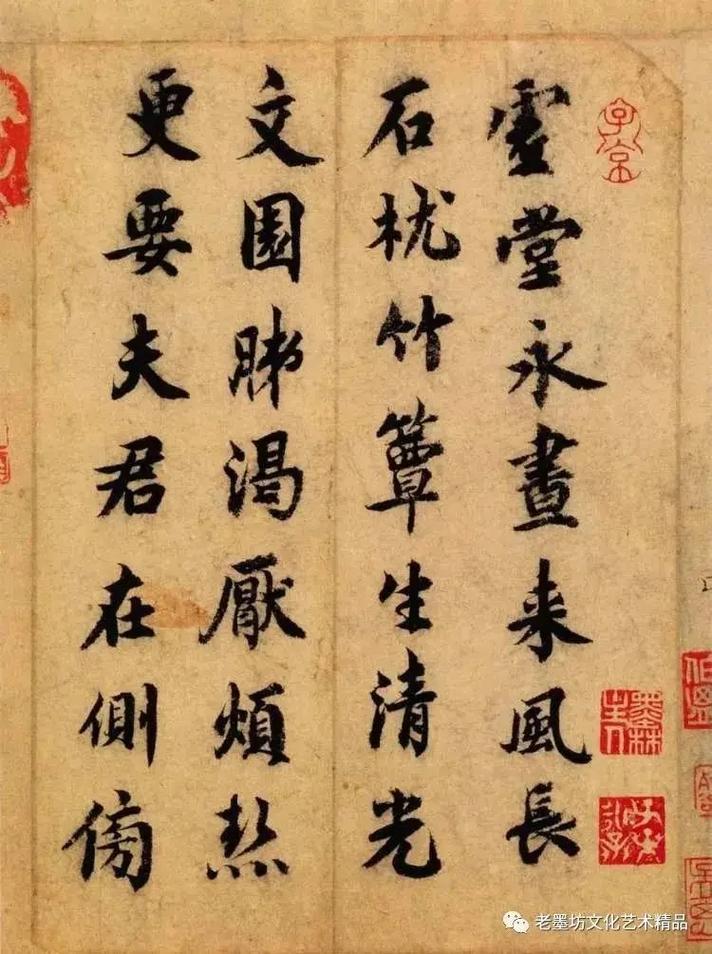 虛堂永晝来風長
石枕竹簟生清光
文園肺渴厭煩熱
更要夫君在側傍
老墨坊文化艺术精品